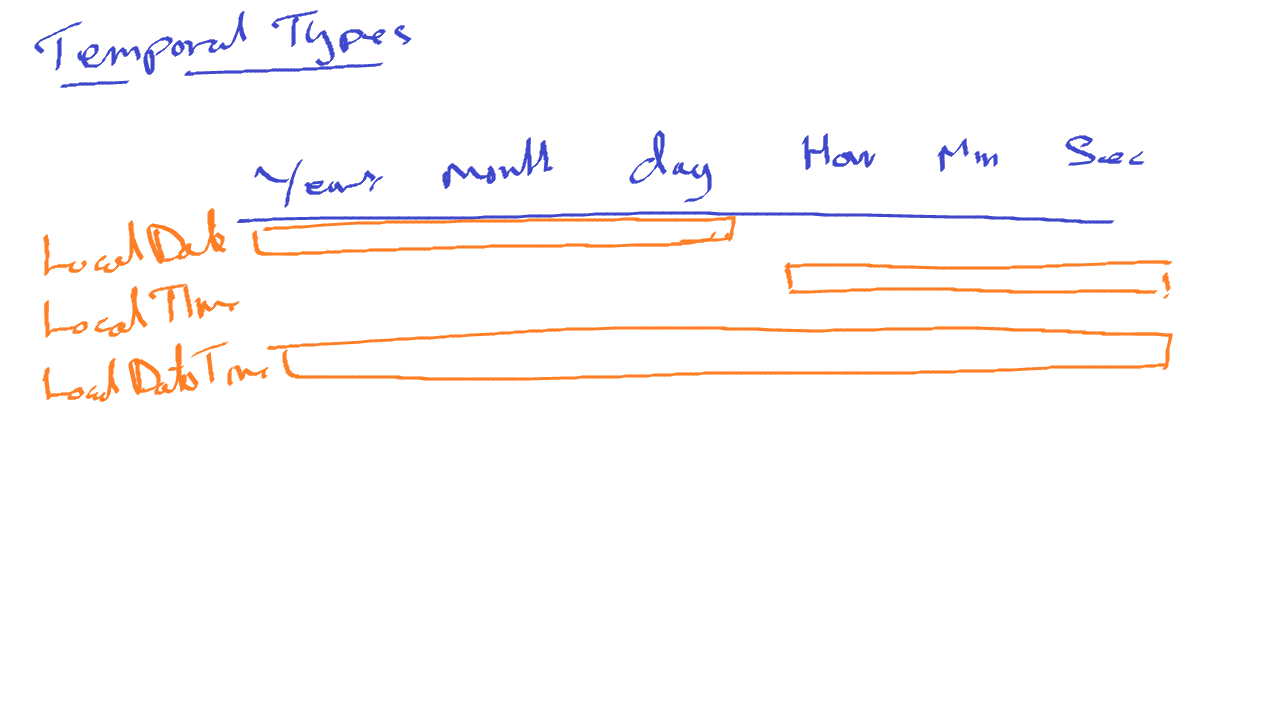 Temporal Types
Year month day Hour Min Sec
LocalDate
LocalTime
LocalDateTime